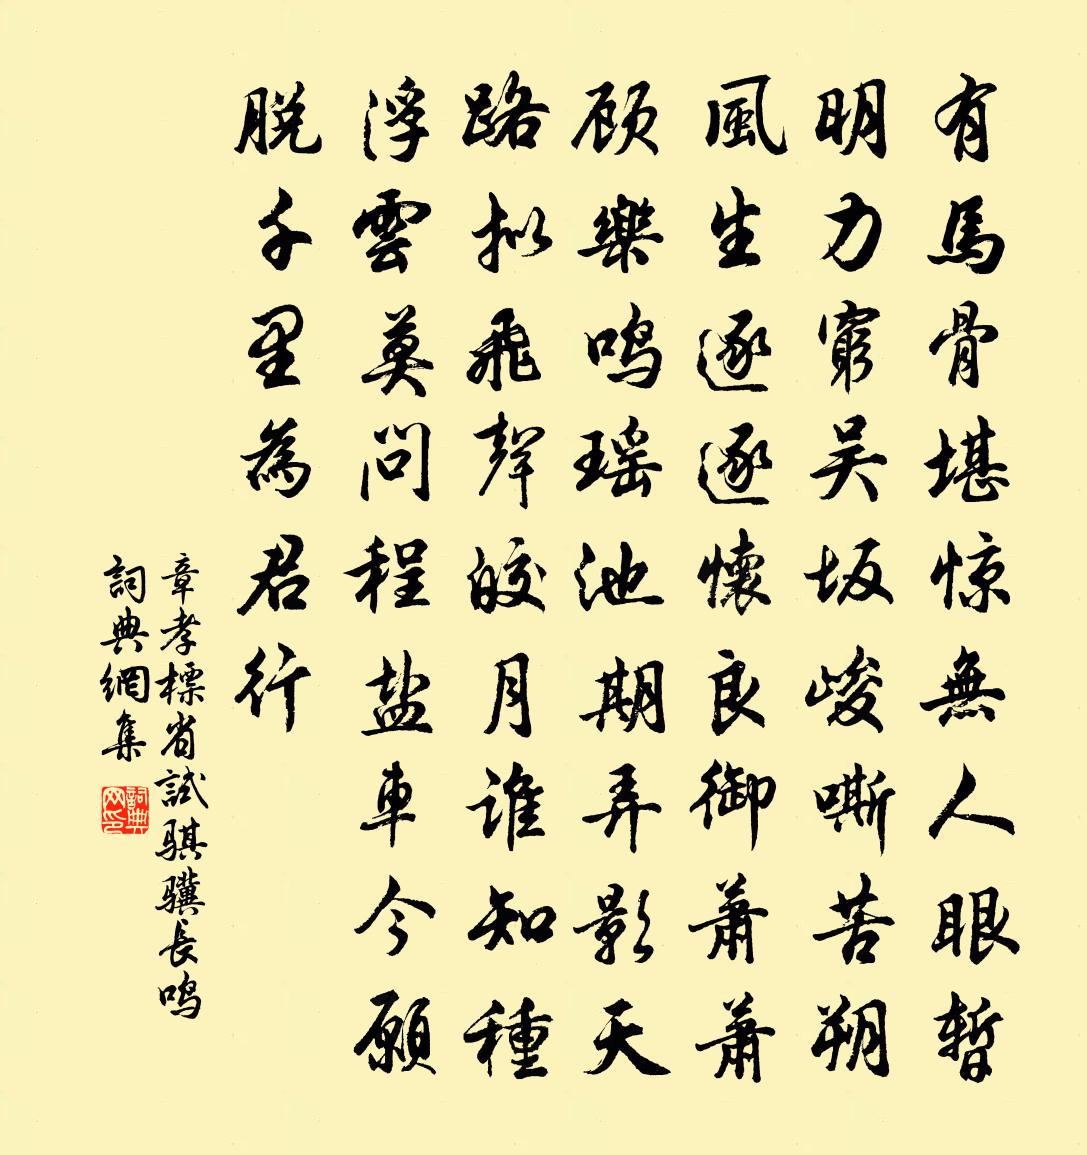 有馬骨堪惊無人眼暂
明力窮吴坂峻嘶苦朔
風生逐逐懷良御蕭蕭
顾樂鸣瑶池期弄影天
路拟飛聲皎月谁知種
浮雲莫问程盐車今願
脱千里為君行
章孝標省試骐骥長鸣
詞典網集
詞典网印